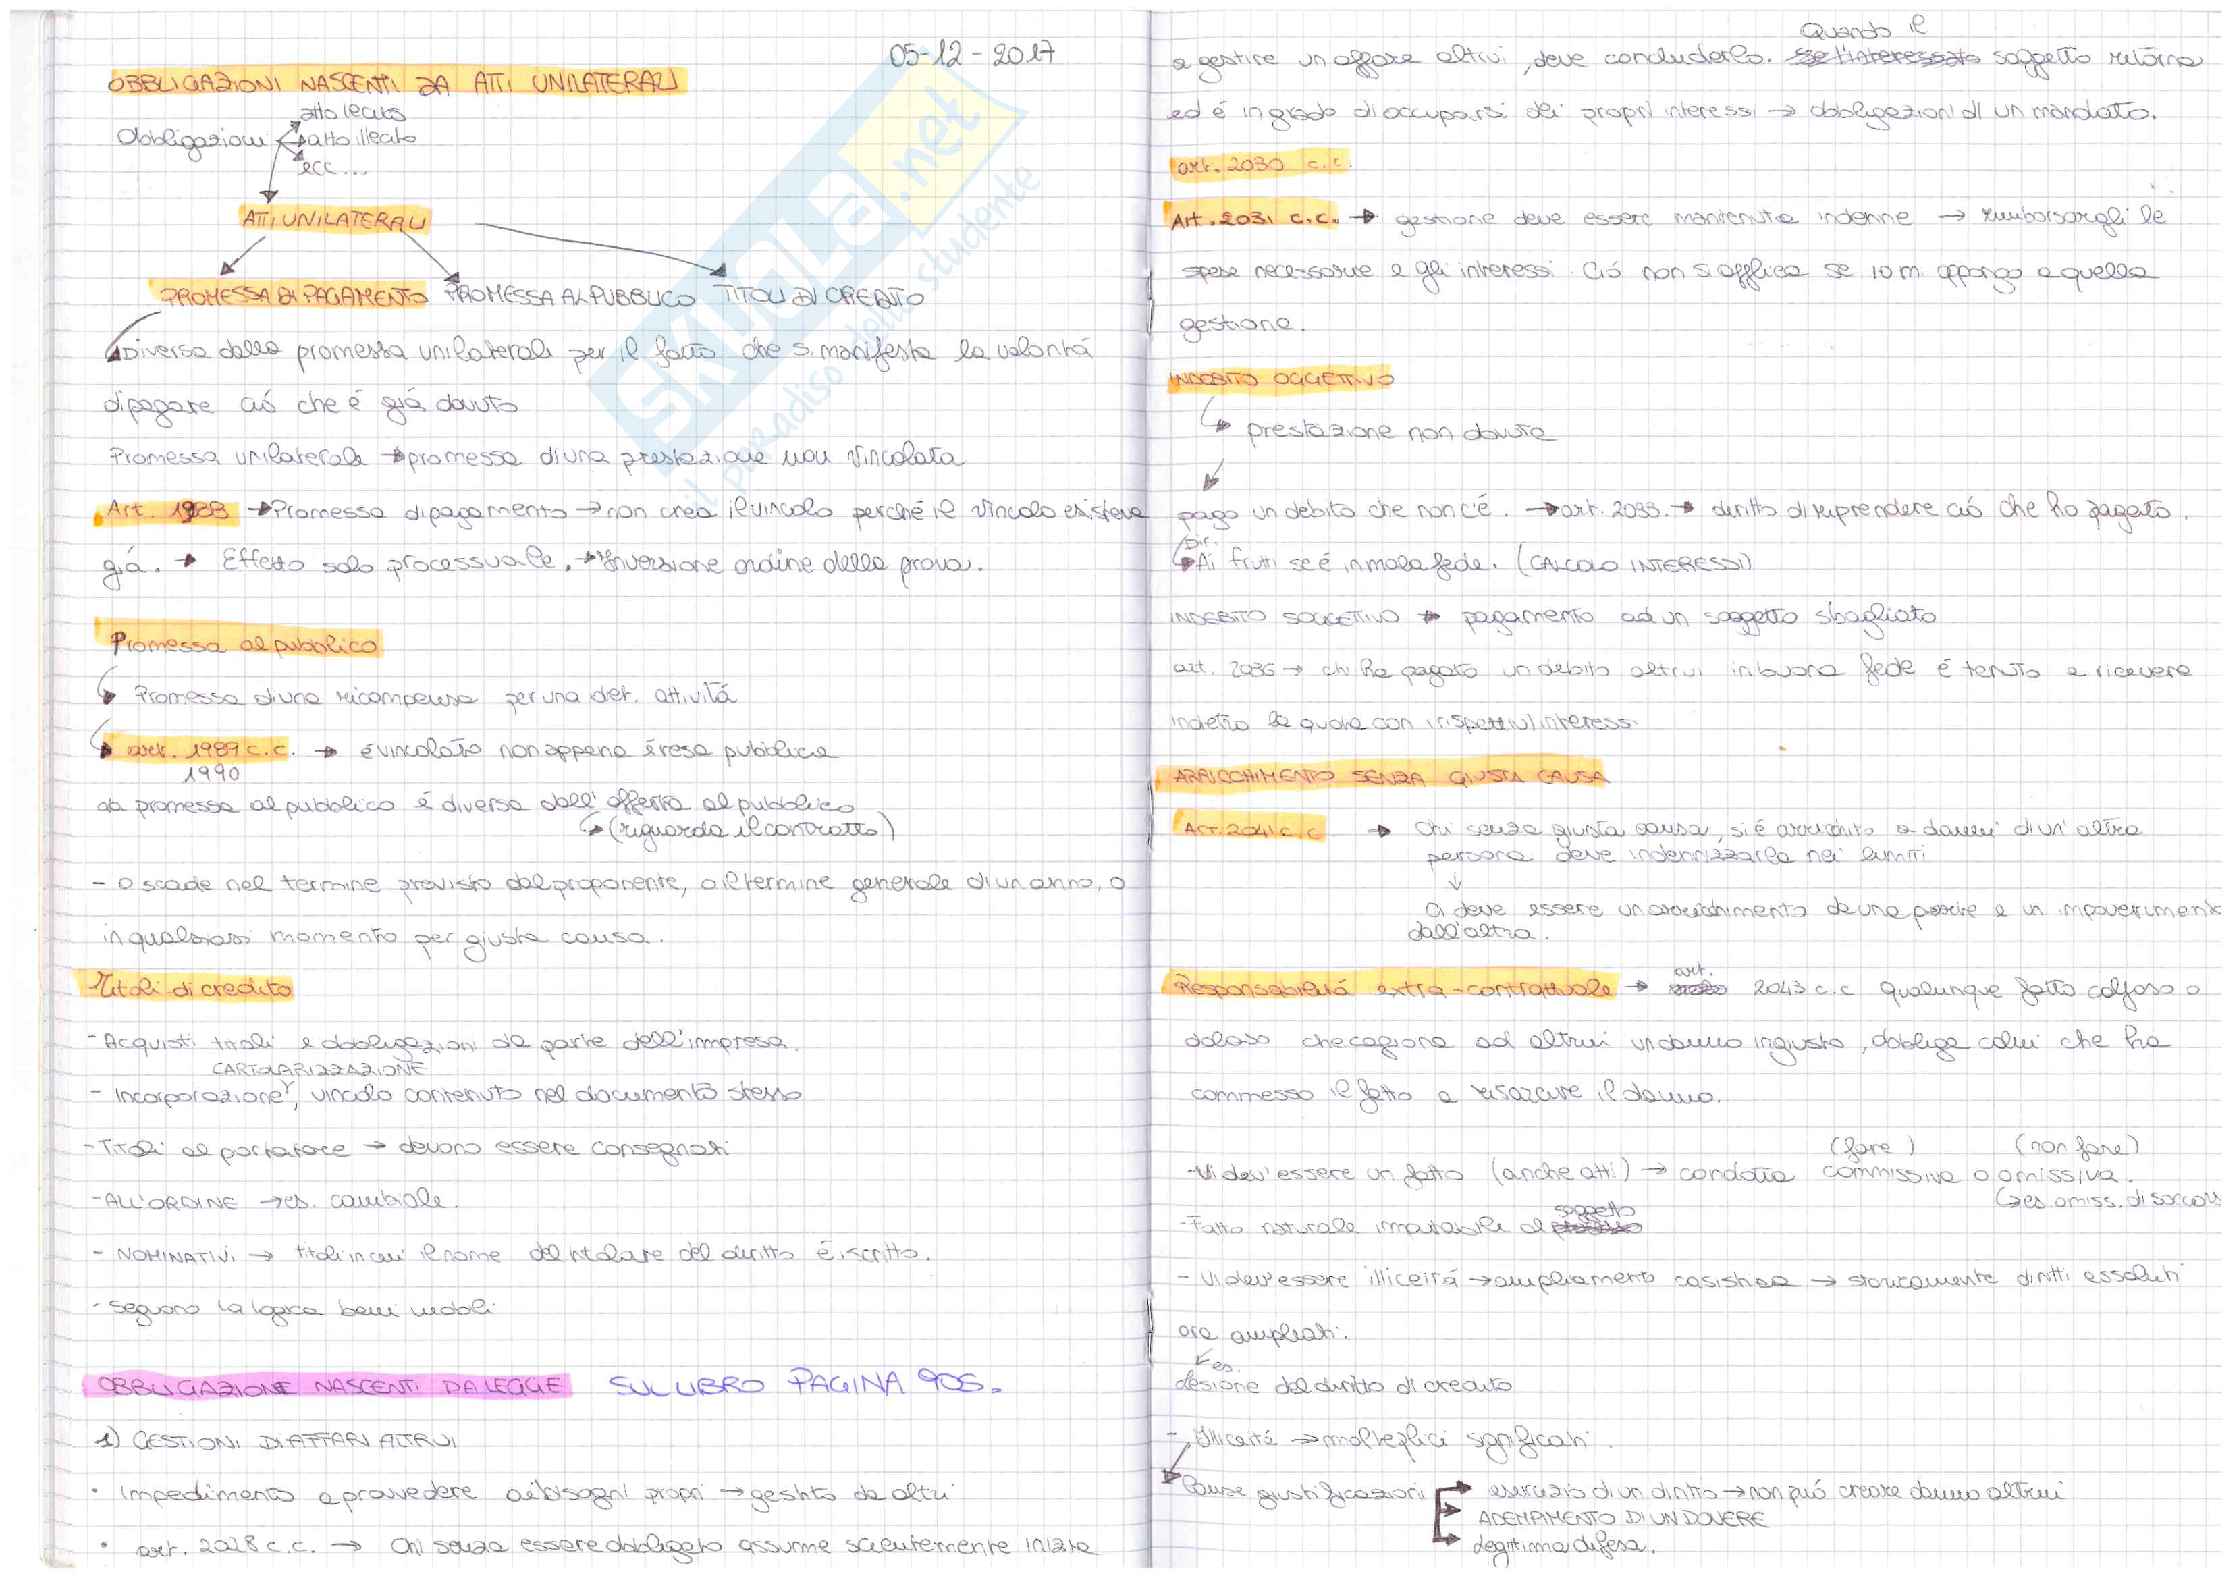 05-12-2017
OBBLIGAZIONI NASCENTI DA ATTI UNILATERALI
atto lecito
Obbligazioni atto illecito
ecc...
ATTI UNILATERALI
PROMESSA DI PAGAMENTO PROMESSA AL PUBBLICO TITOLI DI CREDITO
Diversa dalla promessa unilaterale per il fatto che si manifesta la volontá
di pagare ció che é giá dovuto
Promessa unilaterale → promessa di una prestazione non vincolata
Art. 1988 → Promessa di pagamento → non crea il vincolo perché il vincolo esisteva
giá. → Effetto solo processuale. → Inversione ordine della prova.
Promessa al pubblico
Promessa di una ricompensa per una det. attivitá
art. 1989 c.c. → é vincolato non appena é resa pubblica
1990
La promessa al pubblico é diversa dall'offerta al pubblico
(riguarda il contratto)
- o scade nel termine previsto dal proponente, o il termine generale di un anno, o
in qualsiasi momento per giusta causa.
Titoli di credito
- Acquisti titoli e obbligazioni da parte dell'impresa.
CARTOLARIZZAZIONE
- Incorporazione, vincolo contenuto nel documento stesso
- Titoli al portatore → devono essere consegnati
- ALL'ORDINE → es. cambiale.
- NOMINATIVI → titoli in cui il nome del titolare del diritto é iscritto.
- Seguono la logica beni mobili
OBBLIGAZIONE NASCENTI DA LEGGE SUL LIBRO PAGINA 905.
1) GESTIONI DI AFFARI ALTRUI
• Impedimento a provvedere ai bisogni propri → gestito da altri
• art. 2028 c.c. → Chi senza essere obbligato assume scientemente inizia
Quando il
a gestire un affare altrui, deve concluderlo. se l'interessato soggetto ritorna
ed é in grado di occuparsi dei propri interessi → obbligazioni di un mandato.
art. 2030 c.c.
Art. 2031 c.c. → gestione deve essere mantenuta indenne → rimborsargli le
spese necessarie e gli interessi. Ció non si applica se io mi oppongo a quella
gestione.
INDEBITO OGGETTIVO
prestazione non dovuta
pago un debito che non c'é. → art. 2033. → diritto di riprendere ció che ho pagato.
Dir.
Ai frutti se é in mala fede. (CALCOLO INTERESSI)
INDEBITO SOGGETTIVO → pagamento ad un soggetto sbagliato
art. 2036 → chi ha pagato un debito altrui in buona fede é tenuto a ricevere
indietro la quota con i rispettivi interessi.
ARRICCHIMENTO SENZA GIUSTA CAUSA
Art. 2041 c.c → Chi senza giusta causa, si é arricchito a danni di un'altra
persona deve indennizzarla nei limiti
Ci deve essere un arricchimento da una parte e un impoverimento
dall'altra.
art.
Responsabilitá extra-contrattuale → 2043 c.c qualunque fatto colposo o
doloso che cagiona ad altrui un danno ingiusto, obbliga colui che ha
commesso il fatto a risarcire il danno.
(fare) (non fare)
- Vi dev'essere un fatto (anche atti) → condotta commissiva o omissiva.
es. omiss. di soccorso
soggetto
- Fatto naturale imputabile al
- Vi dev'essere illiceitá → ampliamento casistica → storicamente diritti assoluti
ora ampliati.
es.
lesione del diritto di credito
- Illiceitá → molteplici significati.
Cause giustificazioni esercizio di un diritto → non puó creare danno altrui
ADEMPIMENTO DI UN DOVERE
legittima difesa.
SKUOLA.net
il paradiso dello studente